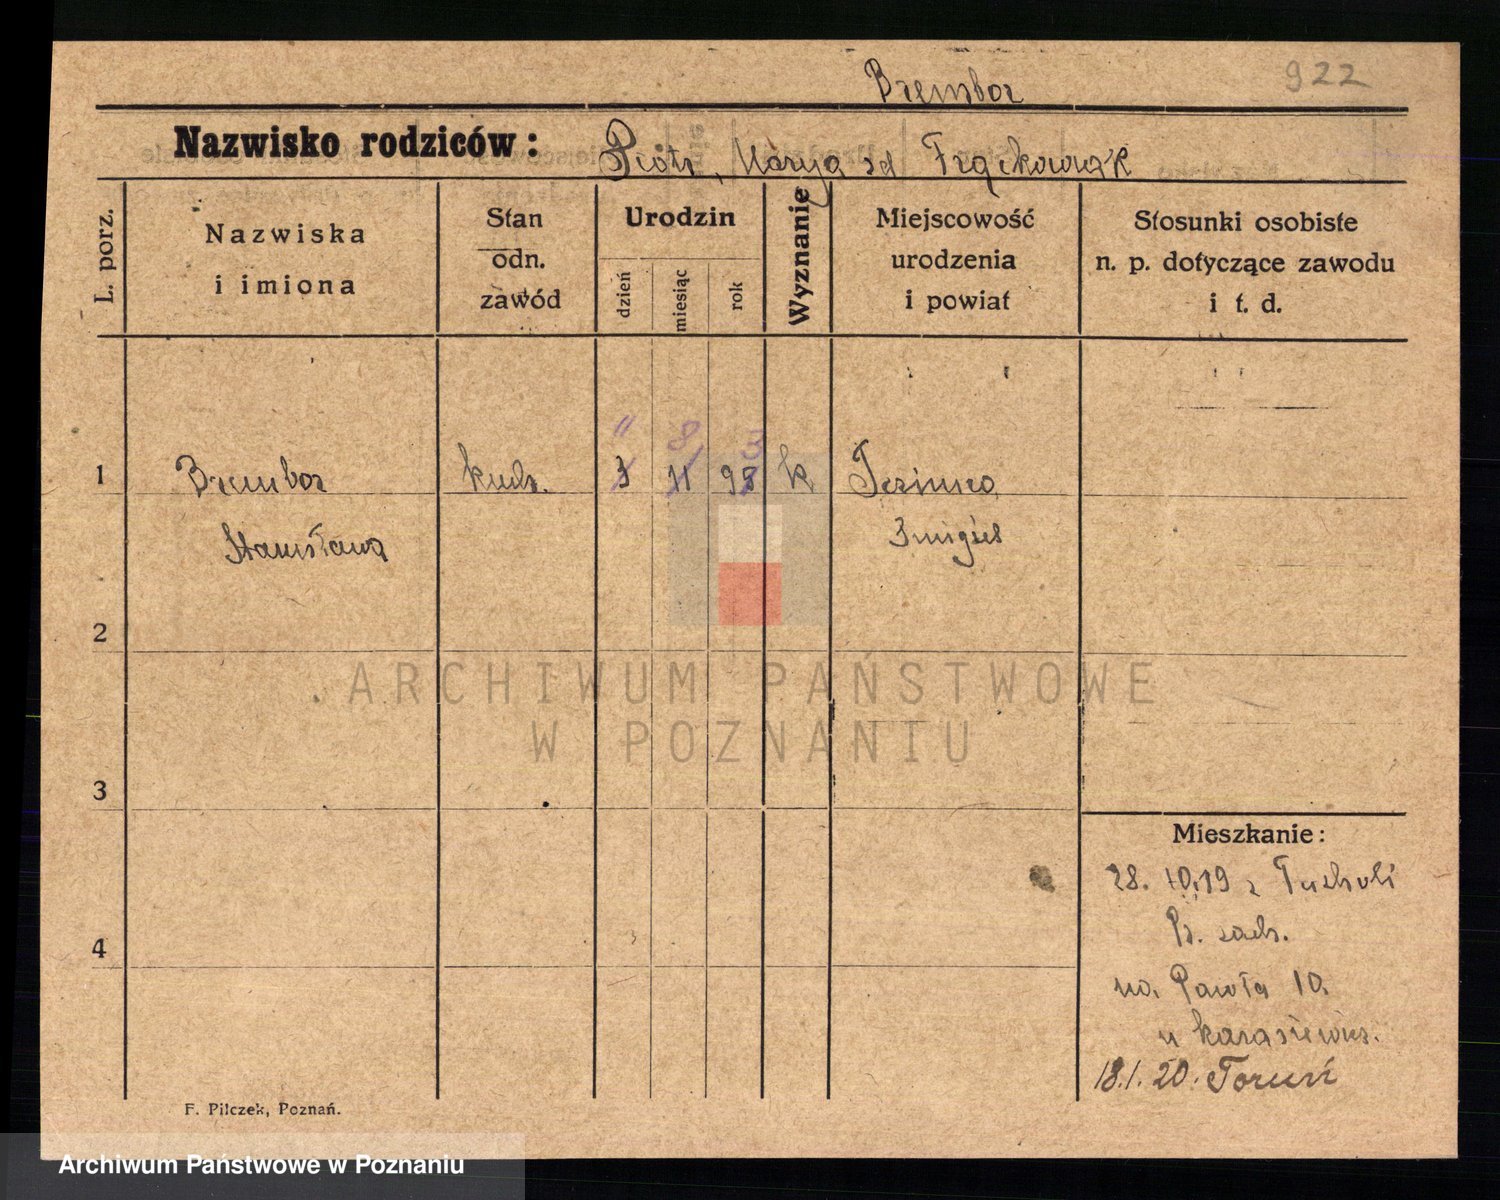 922
Brembor
Nazwisko rodziców:
Piotr, Marya zd Frąckowiak
L. porz.
Nazwiska
i imiona
Stan
odn.
zawód
Urodzin
dzień
miesiąc
rok
Wyznanie
Miejscowość
urodzenia
i powiat
Stosunki osobiste
n. p. dotyczące zawodu
i t. d.
" 8 3
1
Brembor
kuch.
3 11 98
k
Stanisława
Śmigiel
2
ARCHIWUM PAŃSTWOWE
W POZNANIU
3
4
Mieszkanie:
28. 10.19 z Tucholi
Pr. zach.
na Pawła 10.
u Karasiewicz.
18.1.20. Toruń
F. Pilczek, Poznań.
Archiwum Państwowe w Poznaniu